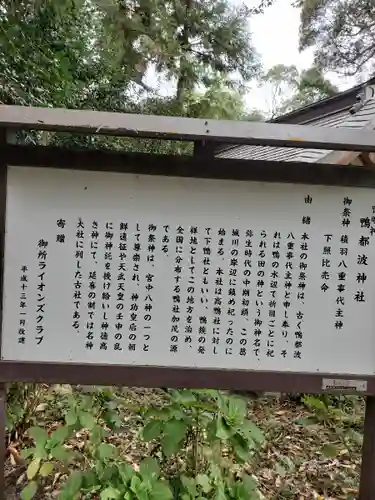 鴨都波神社
御祭神 積羽八重事代主神
下照比売命
由緒 本社の御祭神は、古く鴨都波
八重事代主神と申し奉り、そ
れは鴨の水辺で折目ごとに祀
られる田の神という御神名で、
弥生時代の中期初頭、この葛
城川の岸辺に鎮め祀ったのに
始まる。本社は高鴨社に対し
て下鴨社ともいい、鴨族の発
祥地としてこの地方を治め、
全国に分布する鴨社加茂の源
である。
御祭神は、宮中八神の一つと
して尊崇され、神功皇后の朝
鮮遠征や天武天皇の壬申の乱
に御神託を授け給いし神徳高
き神にて、延喜の制では名神
大社に列した古社である。
寄贈
御所ライオンズクラブ
平成十三年一月改